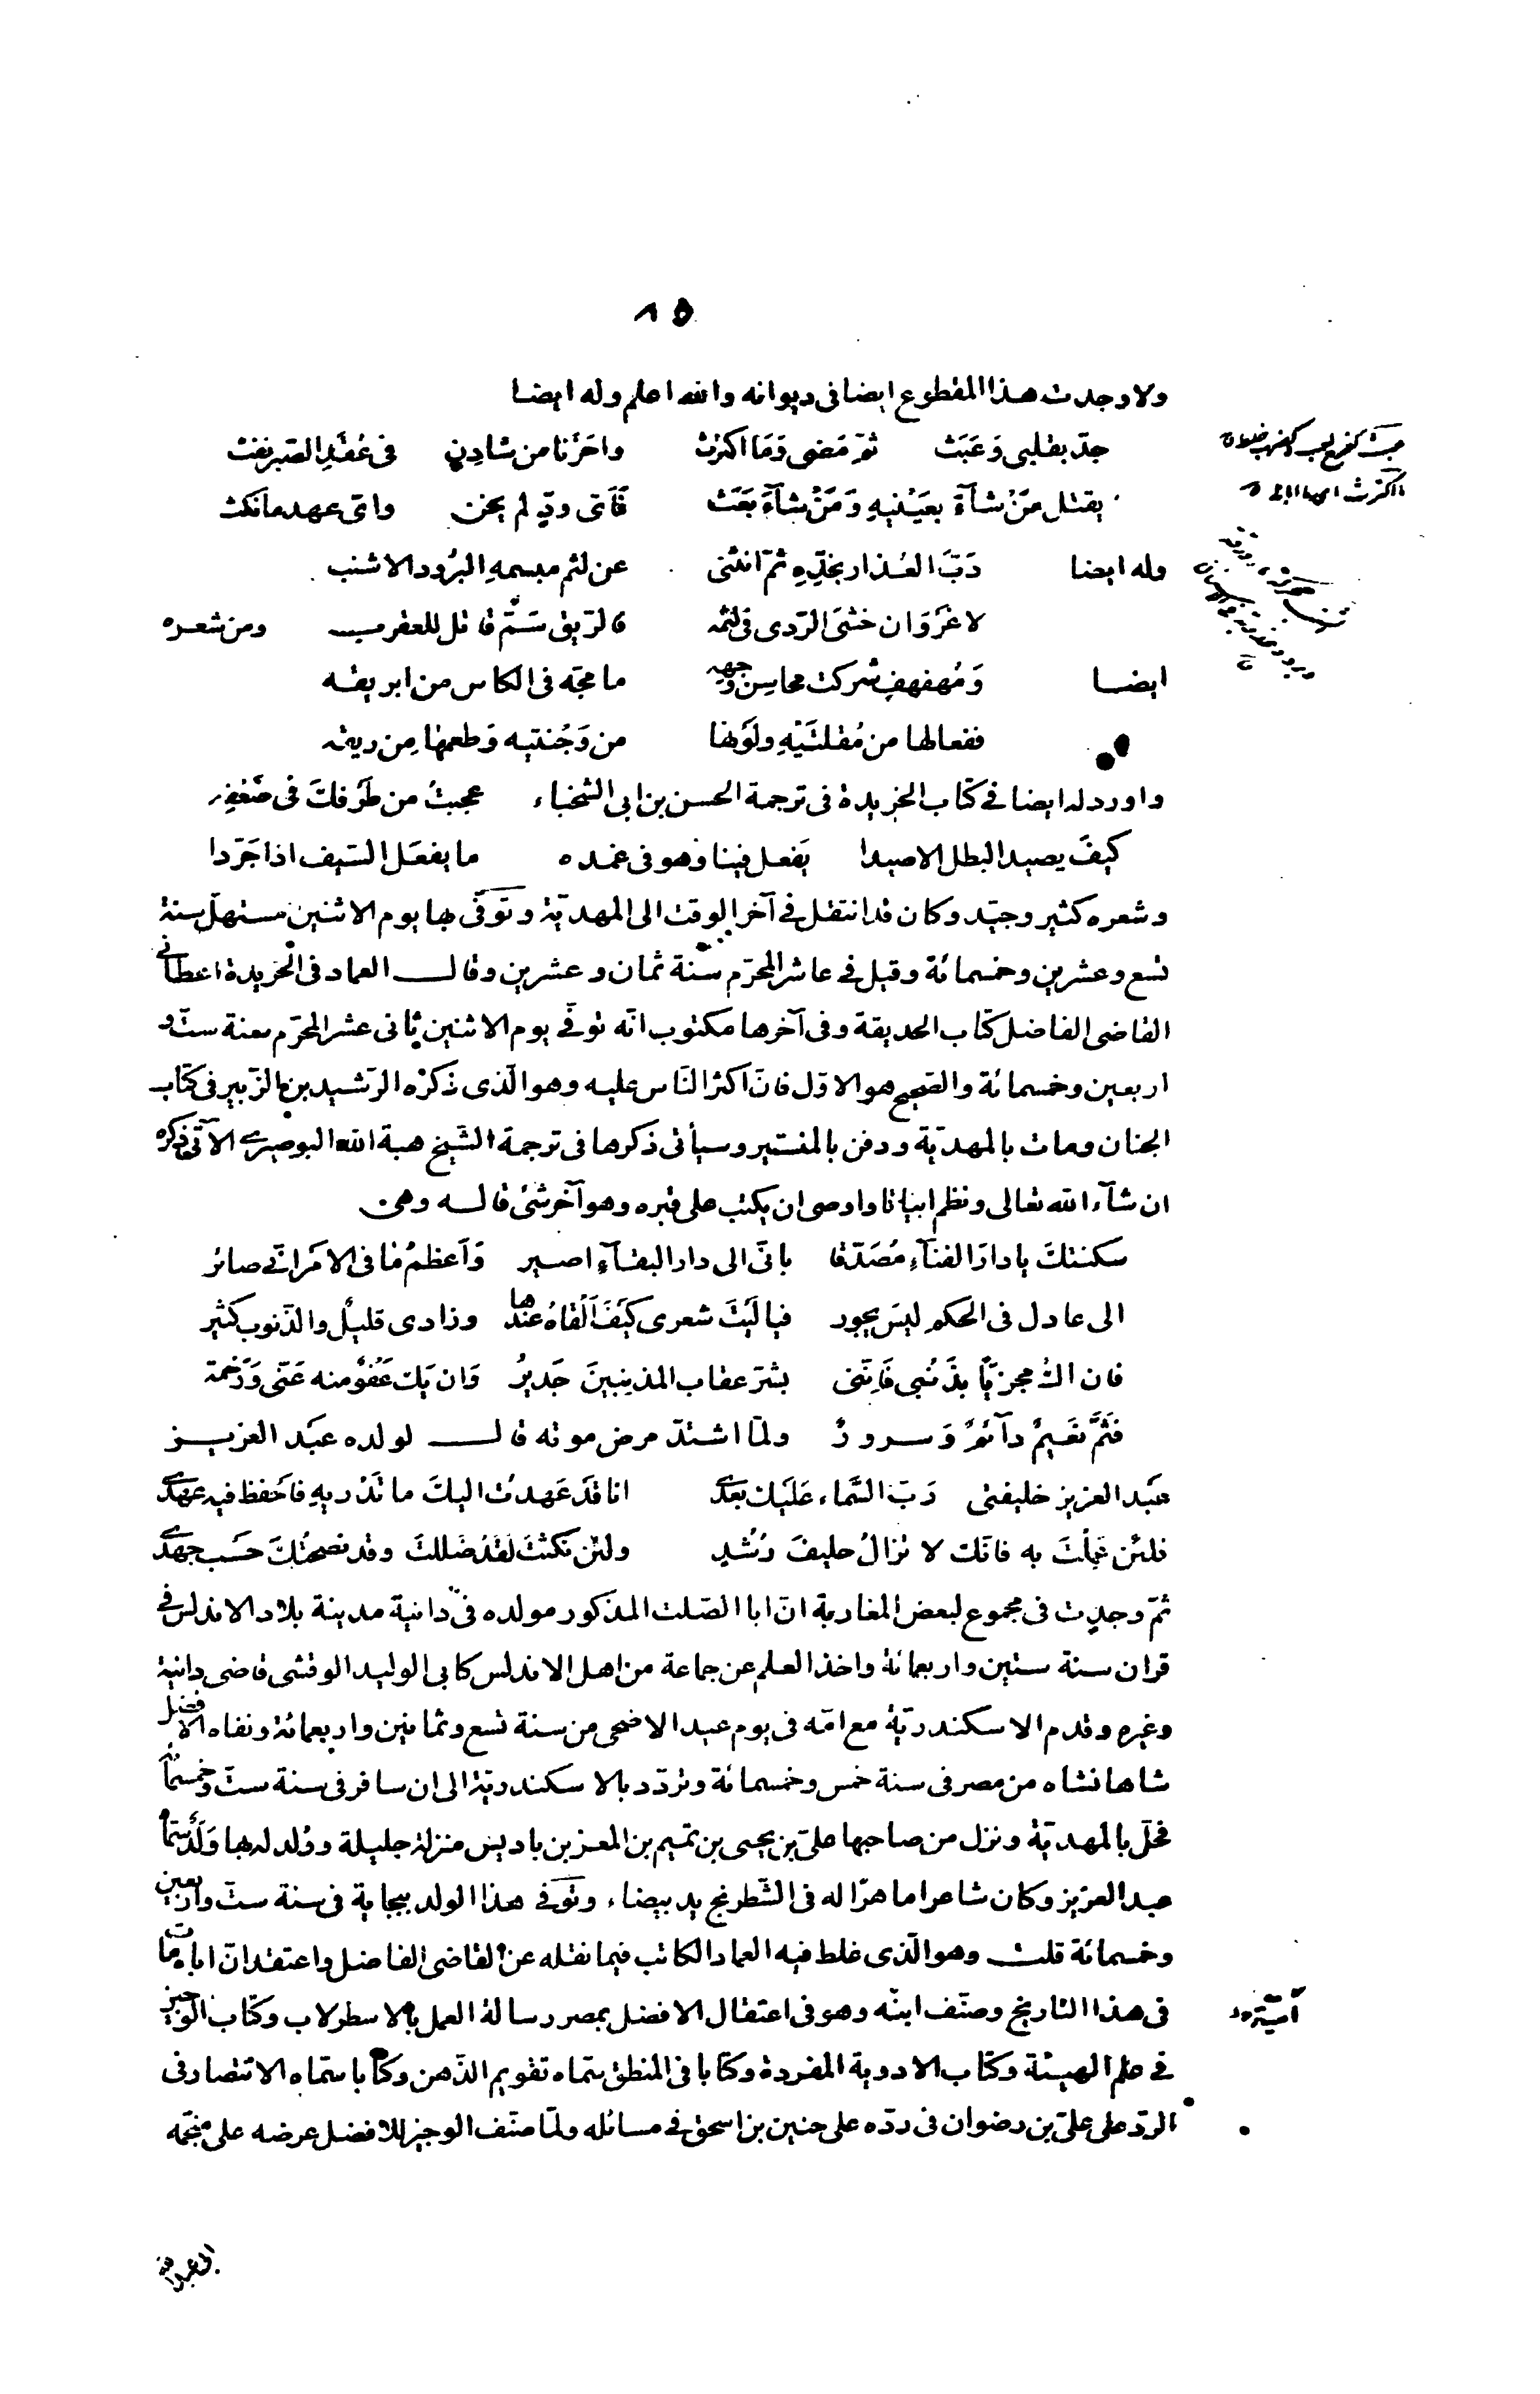 ٨٥
ولا وجدت هذا المقطوع ايضا فى ديوانه والله اعلم وله ايضا
جدّ بقلبى وَعَبَث ثمّ مَضى وَمَا اكترث واحَرَبَا من شادِنٍ فى عُقَدِ الصّبر نفث
يقتل مَنْ شآءَ بعَيْنيهِ وَمَنْ شآءَ بَعَث فَاَىّ ودٍّ لم يخن واىّ عهد ما نكث
وله ايضا دَبَّ العُذار بخدِّهِ ثمّ انثنى عن لثم مبسمهِ البرُود الاشنب
لا غَرْوَ ان خشىَ الرّدى فى لثمه فالرّيق سَمٌّ قاتل للعقرب ومن شعره
ايضا وَمُهفهفٍ شركت محاسن وجهه ما مجّه فى الكاس من ابريقه
ففعالها من مُقلتَيْهِ ولَونُها من وَجْنتيه وَطعمها من ريقه
واورد له ايضا فى كتاب الخريدة فى ترجمة الحسن بن ابى الشخباء عجبتُ من طَرْفكَ فى ضَعْفِه
كيفَ يصيد البطل الاصيدا يَفعل فينا وهو فى غمده ما يفعَل السّيف اذا جَرّدا
وشعره كثير وجيّد وكان قد انتقل فى آخر الوقت الى المهديّة وتوفّى بها يوم الاثنين مستهلّ سنة
تسع وعشرين وخمسمائة وقيل فى عاشر المحرّم سنة ثمان وعشرين وقال العماد فى الخريدة اعطانى
القاضى الفاضل كتاب الحديقة وفى آخرها مكتوب انّه توفّى يوم الاثنين ثانى عشر المحرّم سنة ستّ و
اربعين وخمسمائة والصّحيح هو الاوّل فانّ اكثر النّاس عليه وهو الّذى ذكرُه الرّشيد بن الزّبير فى كتاب
الجنان ومات بالمهديّة ودفن بالمنستير وسيأتى ذكرها فى ترجمة الشّيخ هبة الله البوصيرى الآتى ذكره
ان شآء الله تعالى ونظم ابياتا واوصى ان يكتب على قبره وهو آخر شئ قاله وهى
سكنتكَ يا دارَ الفنآءِ مُصَدّقا بانّى الى دار البقآءِ اصير وَاَعظمُ ما فى الامَر انّى صائر
الى عادل فى الحكم ليسَ يجور فيا لَيْتَ شعرى كَيْفَ اَلْقاهُ عندها وزادى قليلٌ والذّنوب كثير
فان اكُ مجزيّا بذَنْبى فَاِنّنى بشرّ عقاب المذنبينَ جَديرُ وَان يَك عَفْوٌ منه عَنّى وَرَحْمة
فَثَمَّ نَعَيمٌ دآئمٌ وَسرورُ ولمّا اشتدّ مرض موته قال لولده عَبد العزيز
عَبد العزيز خليفتى رَبّ السّماء عَلَيك بَعدى انا قَد عَهدتُ اليكَ ما تَدْريهِ فاحَفظ فيه عهدى
فلئن عَملْتَ به فانّك لا تزالُ حليفَ رُشدٍ ولئن نَكثتَ لَقَدْ ضَلَلتَ وقد نصحتُكَ حسَب جهدى
ثمّ وجدت فى مجموع لبعض المغاربة انّ ابا الصّلت المذكور مولده فى دانية مدينة بلاد الاندلس فى
قران سنة ستين واربعمائة واخذ العلم عن جماعة من اهل الاندلس كابى الوليد الوقشى قاضى دانية
وغيره وقدم الاسكندريّة مع امّه فى يوم عيد الاضحى من سنة تسع وثمانين واربعمائة ونفاه الافضل
شاهانشاه من مصر فى سنة خمس وخمسمائة وتردّد بالاسكندريّة الى ان سافر فى سنة ستّ وخمسمائة
فحلّ بالمهديّة ونزل من صاحبها علىّ بن يحيى بن تميم بن المعز بن باديس منزلة جليلة وولد له بها وَلَد سمّاه
عبد العزيز وكان شاعرا ماهرا له فى الشّطرنج يد بيضاء وتوفى هذا الولد ببجاية فى سنة ستّ واربعين
وخمسمائة قلت وهو الّذى غلط فيه العماد الكاتب فيما نقله عن القاضى الفاضل واعتقد انّ اباه مات
فى هذا التاريخ وصنّف اميّه وهو فى اعتقال الافضل بمصر رسالة العمل بالاسطرلاب وكتاب الوجيز
فى علم الهيئة وكتاب الادوية المفردة وكتابا فى المنطق سمّاه تقويم الذّهن وكتابا سمّاه الانتصار فى
الردّ على علىّ بن رضوان فى ردّه على حنين بن اسحق فى مسائله ولمّا صنّف الوجيز للافضل عرضه على منجّمه